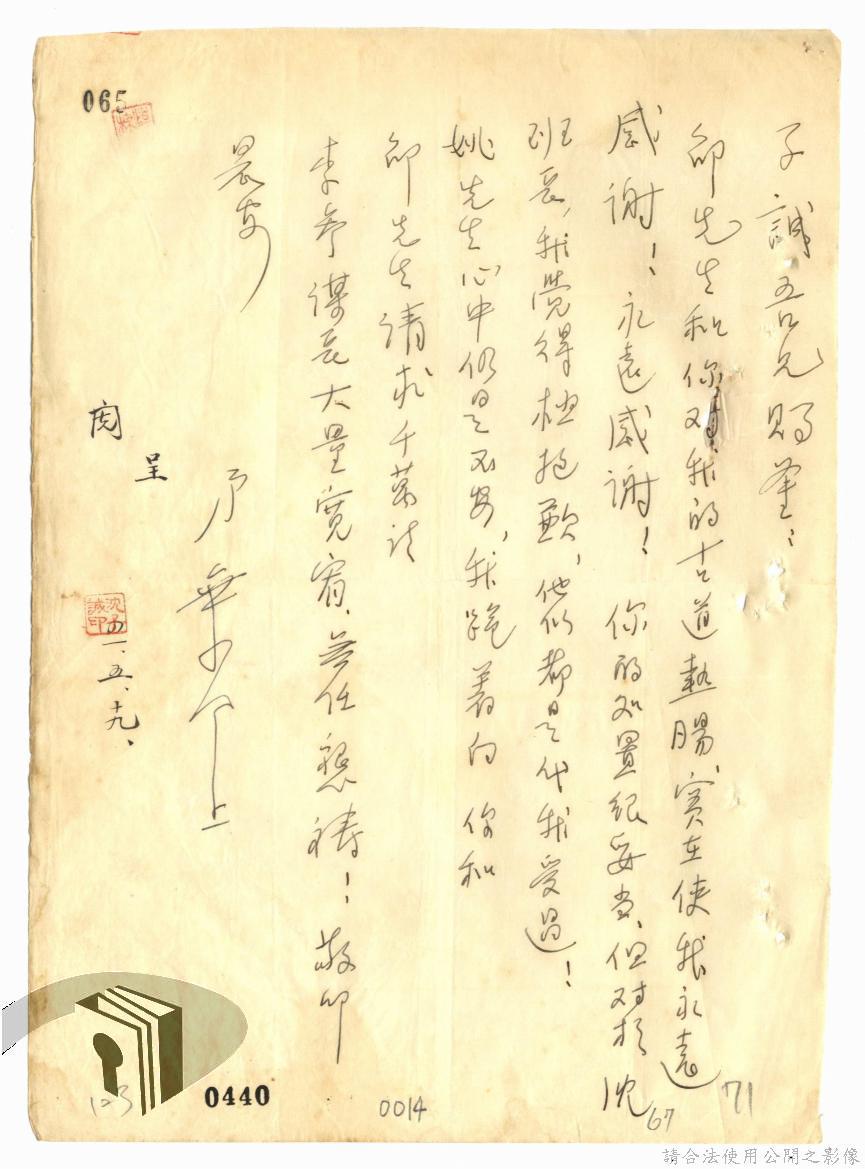 065
子誠吾兄賜鉴：
邱先生和你对我的古道熱腸，實在使我永遠
感謝！永遠感謝！你的处置很妥当、但对於沈
班長，我覺得極抱歉，他们都是代我受過！
姚先生心中仍是不安，我跪着向你和
邱先生請求千萬请
李参謀長大量寬宥、無任懇禱！敬叩
晨安
弟 叩上
閱
呈
沈子誠印
四一、五、十九、
71
67
0014
0440
123
請合法使用公開之影像